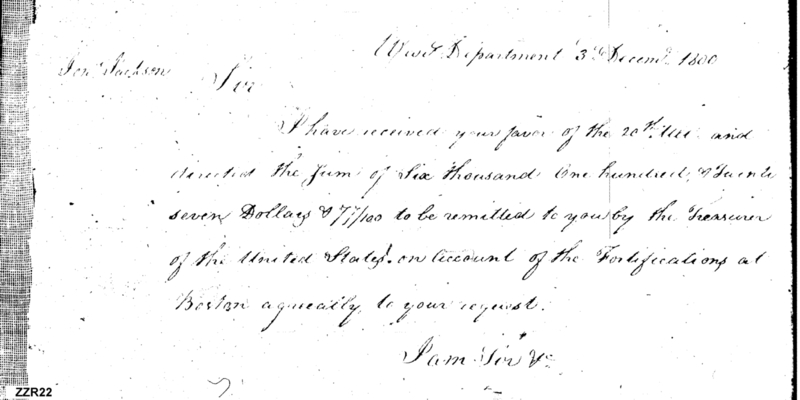 War Department 3d Decemr. 1800
Jon. Jackson
Sir
I have received your favor of the 20th. Ult. and
directed the Sum of Six thousand One hundred, & Twenty
seven Dollars & 77/100 to be remitted to you by the Treasurer
of the United States. on account of the Fortifications at
Boston agreeably, to your request.
I am Sir &c
ZZR22